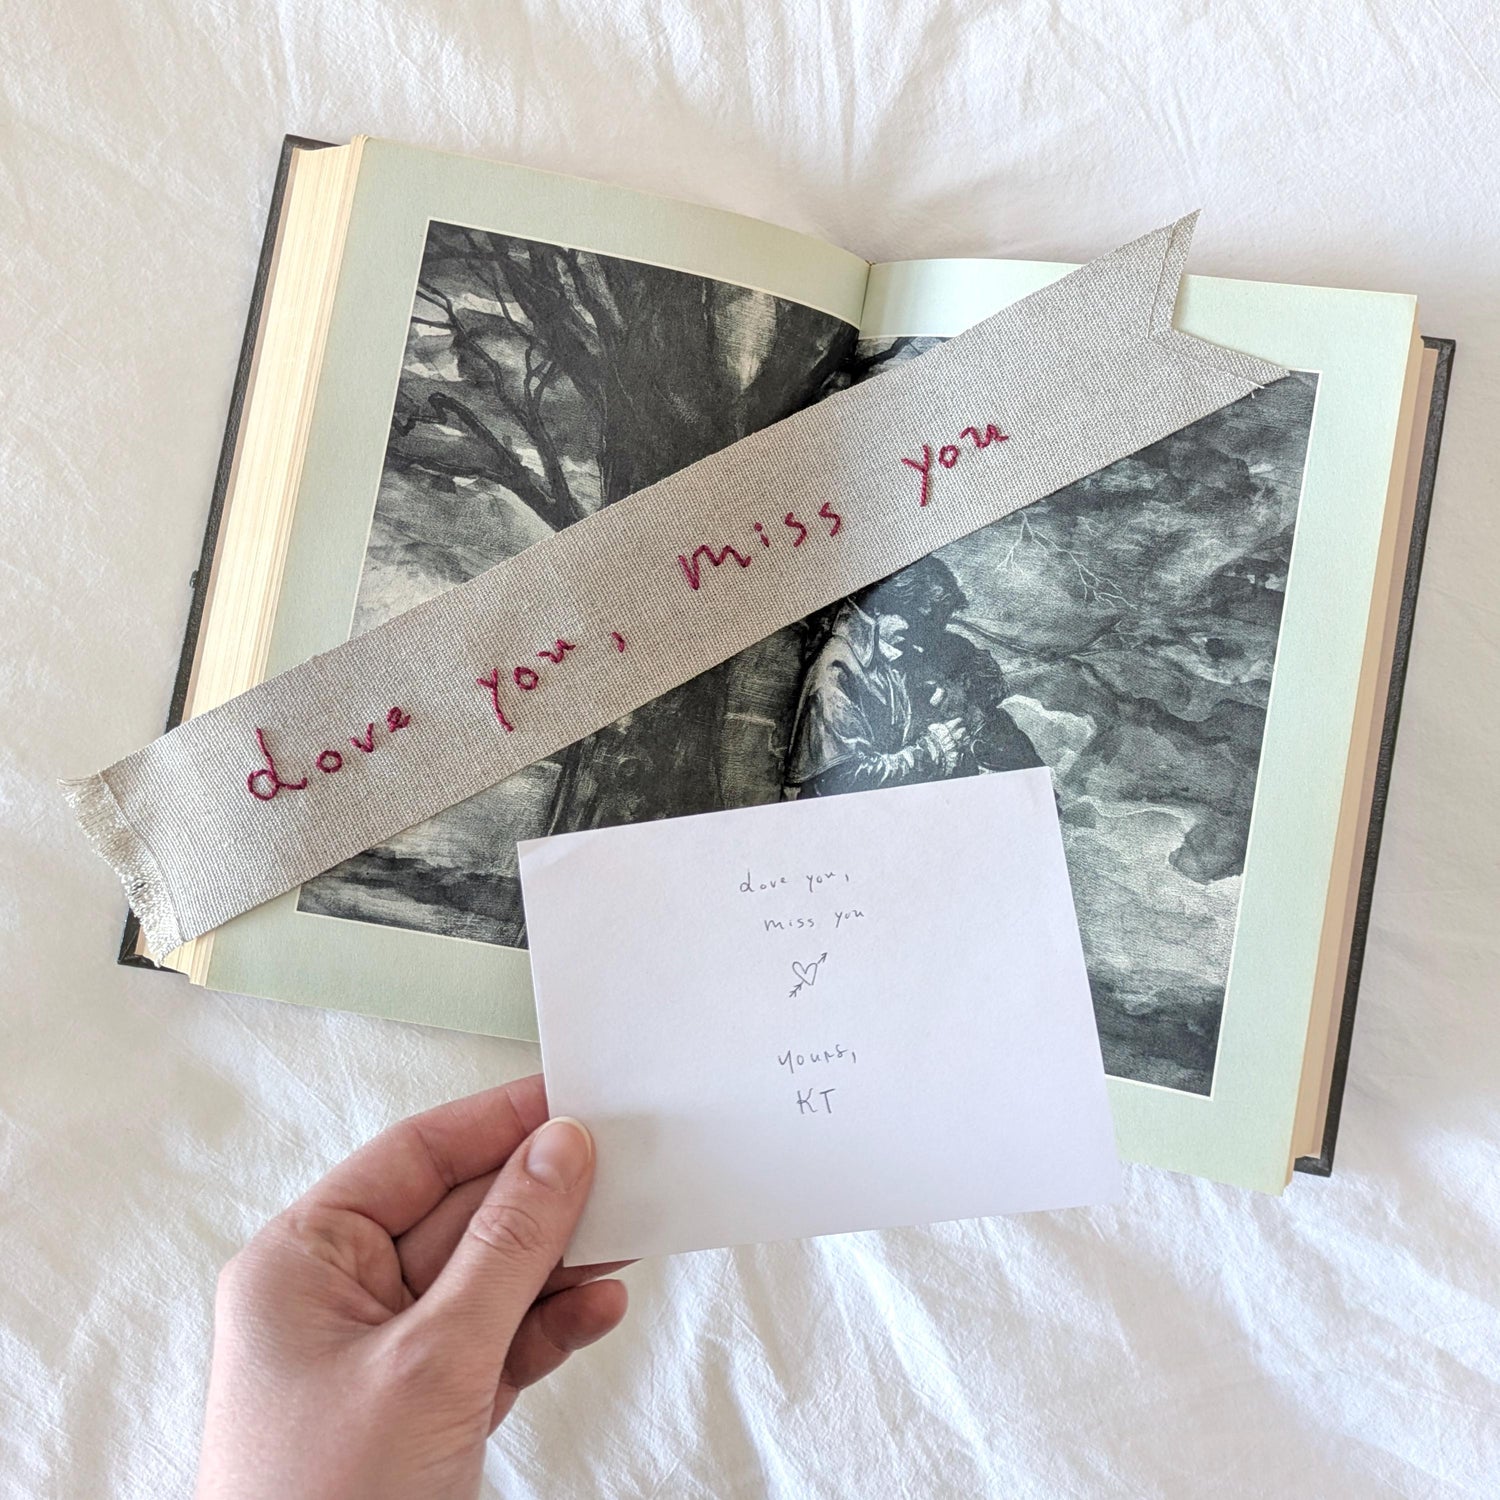 Love you, miss you
Love you,
miss you
yours,
KT